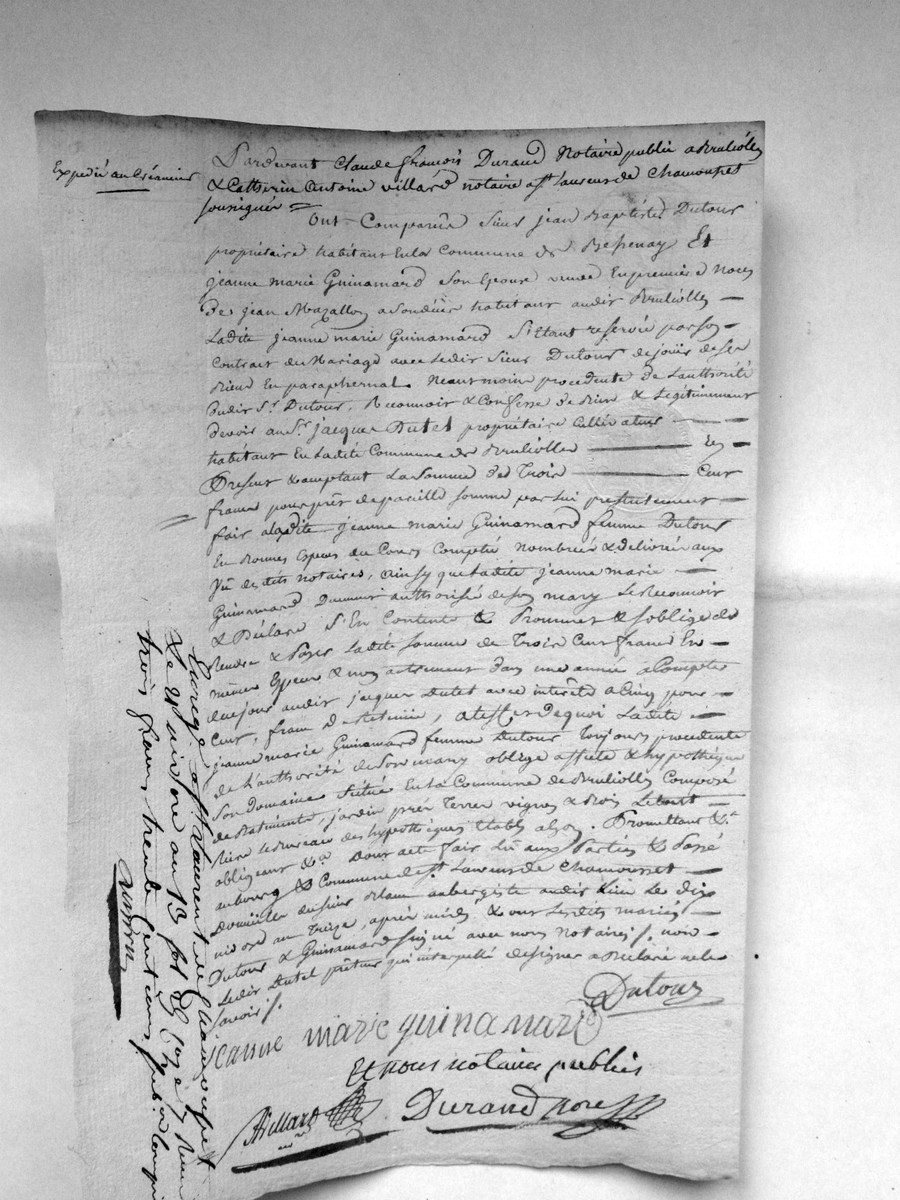 Expedié au Créancier
Pardevant Claude françois Durand Notaire public a Brulliolles
& Catherin Antoine villard notaire a st Laurens de Chamousset
soussignés
Ont Comparus Sieur jean Baptiste Dutour
propriétaire habitant En la Commune de Bessenay Et
jeanne marie Guinamard Son Epouse veuve En premiere Noces
de jean Mazallon habitant audit Brulliolles
Ladite jeanne marie Guinamard S'Etant reservée par son
Contrat de Mariage avec Ledit Sieur Dutour de jouir de ses
Biens En paraphernal. Neantmoins procedente de L'authorité
dudit Sr. Dutour, Reconnoit & Confesse de Bien & Legitimement
devoir au Sr. jacques Dutel propriétaire Cultivateur
habitant En Ladite Commune de Brulliolles icy
Present & acceptant La Somme de Trois Cent
francs pour prêt de pareille somme par lui presentement
fait a Ladite jeanne marie Guinamard femme Dutour
En Bonnes Especes du Cours Comptée Nombrée & delivrée aux
Vu desdits notaires, ainsy que Ladite jeanne marie
Guinamard authorisée de son mary Le Reconnoit
& Déclare S'En Contente & Promet & s'oblige de
Rendre & Payer Ladite Somme de Trois Cent francs En
mêmes Especes & non autrement dans une année a Compter
de ce jour audit jacques Dutel avec intérêts a Cinq pour
Cent, franc de Retenue, a l'Effet de quoi Ladite
jeanne marie Guinamard femme Dutour Toujours procedente
de L'authorité de son mary oblige affecte & hypothéque
Son Domaine Situé En La Commune de Brulliolles Composé
de Batiments, jardin prés Terres vignes & Bois Le tout
Rière Le Bureau des hypothèques Etabli a Lyon. Promettant &a
obligeant &a Dont acte fait Lu aux Parties & Passé
au bourg & Commune de st. Laurens de Chamousset
Domicile du sieur aubergiste audit Lieu Le dix
nivose an Treize, après midi, & ont Lesdits mariés
Dutour & Guinamard signé avec nous Notaires non
Ledit Dutel prêteur qui interpellé de signer a Déclaré ne le
savoir
Dutour
jeanne marie guinamard
Et nous notaires publics
Villard
Durand nore
Enregé a st. Laurent de Chamousset
Le 21 nivose an 13 fol
trois francs trente Cent